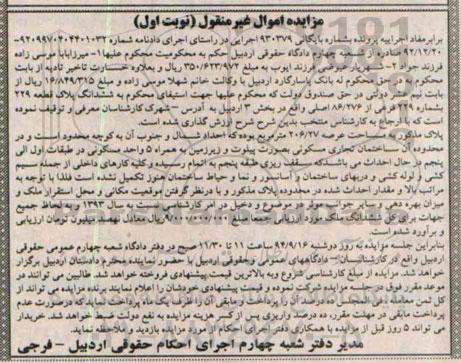 مزایده اموال غیر منقول (نوبت اول)
برابر مفاد اجراییه پرونده بشماره بایگانی ۹۳۰۳۷۹ اجرایی در راستای اجرای دادنامه شماره
۹۲/۱۲/۲۰ صادره از شعبه چهارم دادگاه حقوقی اردبیل حکم به محکومیت محکوم علیها ۱- میرزابابا عیسی زاده
فرزند جواد ۲- شهلا موسی زاده فرزند ایوب به مبلغ ۳۵۰/۶۲۳/۹۷۲ ریال و بعلاوه خسارت تاخیر تادیه از بابت
محکوم به در حق محکوم له بانک پاسارگارد اردبیل با وکالت خانم شهلا موسی زاده و مبلغ ۱۶/۸۴۹/۳۱۵ ریال از
بابت نیم عشر دولتی در حق صندوق دولت که محکوم علیها جهت استیفای محکوم به ششدانگ پلاک قطعه ۲۲۹
بشماره ۲۲۹ فرعی از ۸۶/۲۷۶ اصلی واقع در بخش ۳ اردبیل به آدرس - شهرک کارشناسان معرفی و توقیف نموده
است که با ارجاع به کارشناس منتخب بدین شرح ارزش گذاری شده است.
پلاک مذکور به مساحت عرصه ۲۰۶/۲۷ مترمربع بوده که احداد شمال و جنوب آن به کوچه محدود است و در
محدوده آن ساختمان تجاری مسکونی بصورت پیلوت و زیرزمین به همراه ۵ واحد مسکونی در طبقات اول الی
پنجم در حال احداث می باشد که سقف ریزی طبقه پنجم به اتمام رسیده و کلیه کارهای داخلی از جمله سیم
کشی و لوله کشی و دربهای ساختمان و آسانسور و نما و حیاط ساختمان هنوز تکمیل نشده است فلذا با توجه به
مراتب بالا و مقدار احداث شده در محدوده پلاک مذکور و با در نظر گرفتن موقعیت مکانی و محل استقرار ملک و
میزان بهره دهی و سایر جوانب موثر در موضوع و دخیل در امر کارشناسی نسبت به سال ۱۳۹۳ و به لحاظ جمیع
جهات برای کل ششدانگ ملک مورد ارزیابی جمعا مبلغ ریال معادل تومان ارزیابی
و برآورد شده است.
بنابراین جلسه مزایده به روز دوشنبه ۹۴/۹/۱۶ ساعت ۱۱ تا ۱۱/۳۰ صبح در دفتر دادگاه شعبه چهارم عمومی حقوقی
اردبیل واقع در کارشناسان - دادگاههای عمومی و حقوقی اردبیل با حضور نماینده محترم دادستان اردبیل برگزار
خواهد شد. مزایده از مبلغ کارشناسی شروع و به بالاترین قیمت پیشنهادی فروخته خواهد شد. طالبین می توانند در
موعد مقرر فوق در جلسه مزایده شرکت نموده و قیمت پیشنهادی خودشان را اعلام نمایند. برنده مزایده می تواند از
کل ثمن معامله ده درصد آن را پرداخت و مابقی آن را ظرف یک ماه پرداخت نماید که در صورت عدم
پرداخت مابقی در مهلت مقرر، ده درصد واریزی پس از کسر هزینه مزایده به نفع دولت ضبط خواهد شد. خریدار
می تواند ۵ روز قبل از مزایده با همکاری دفتر اجرای احکام از مورد مزایده بازدید و ملاحظه نماید.
مدیر دفتر شعبه چهارم اجرای احکام حقوقی اردبیل - فرجی